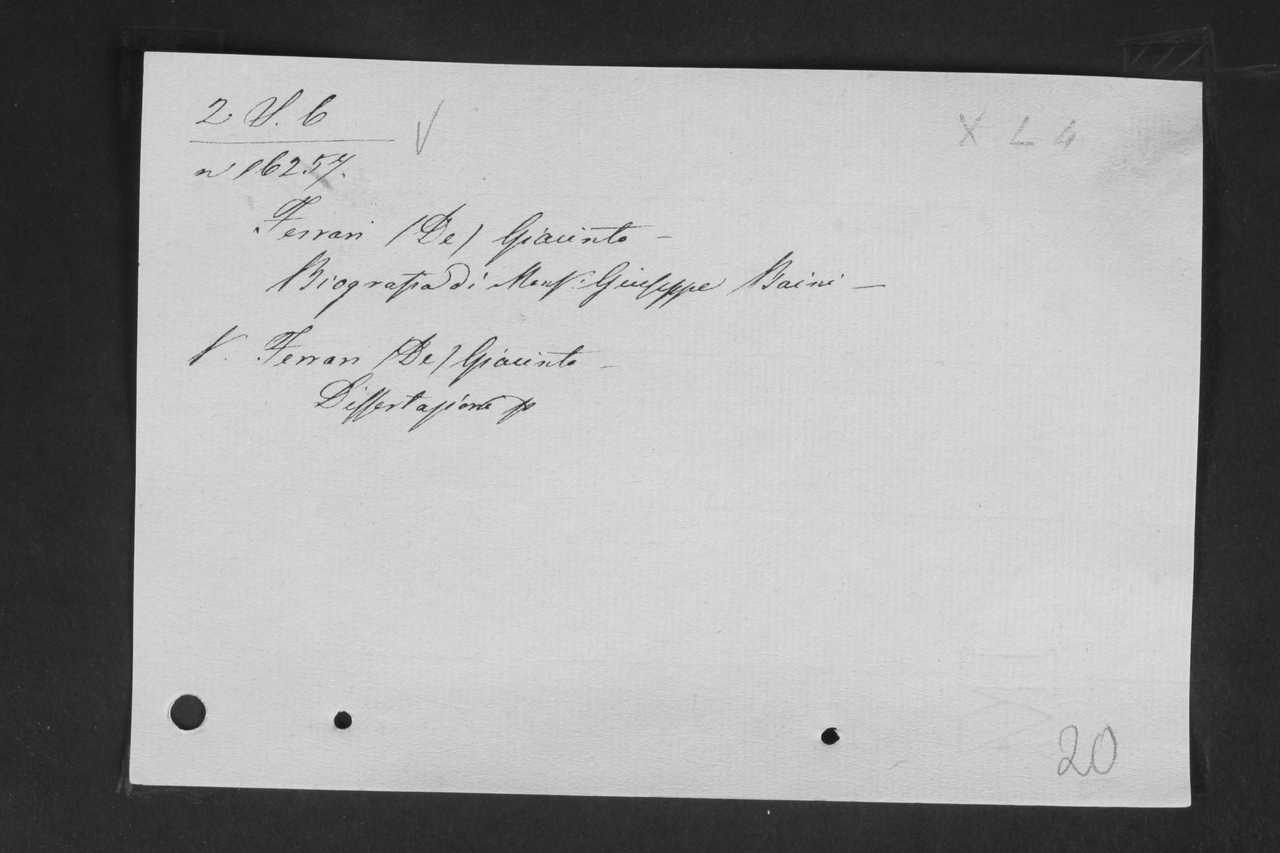 2. S. 6
X L 4
n 16257.
Ferrari (De) Giacinto —
Biografia di Mons: Giuseppe Baini —
V. Ferrari (De) Giacinto —
Dissertazione
20